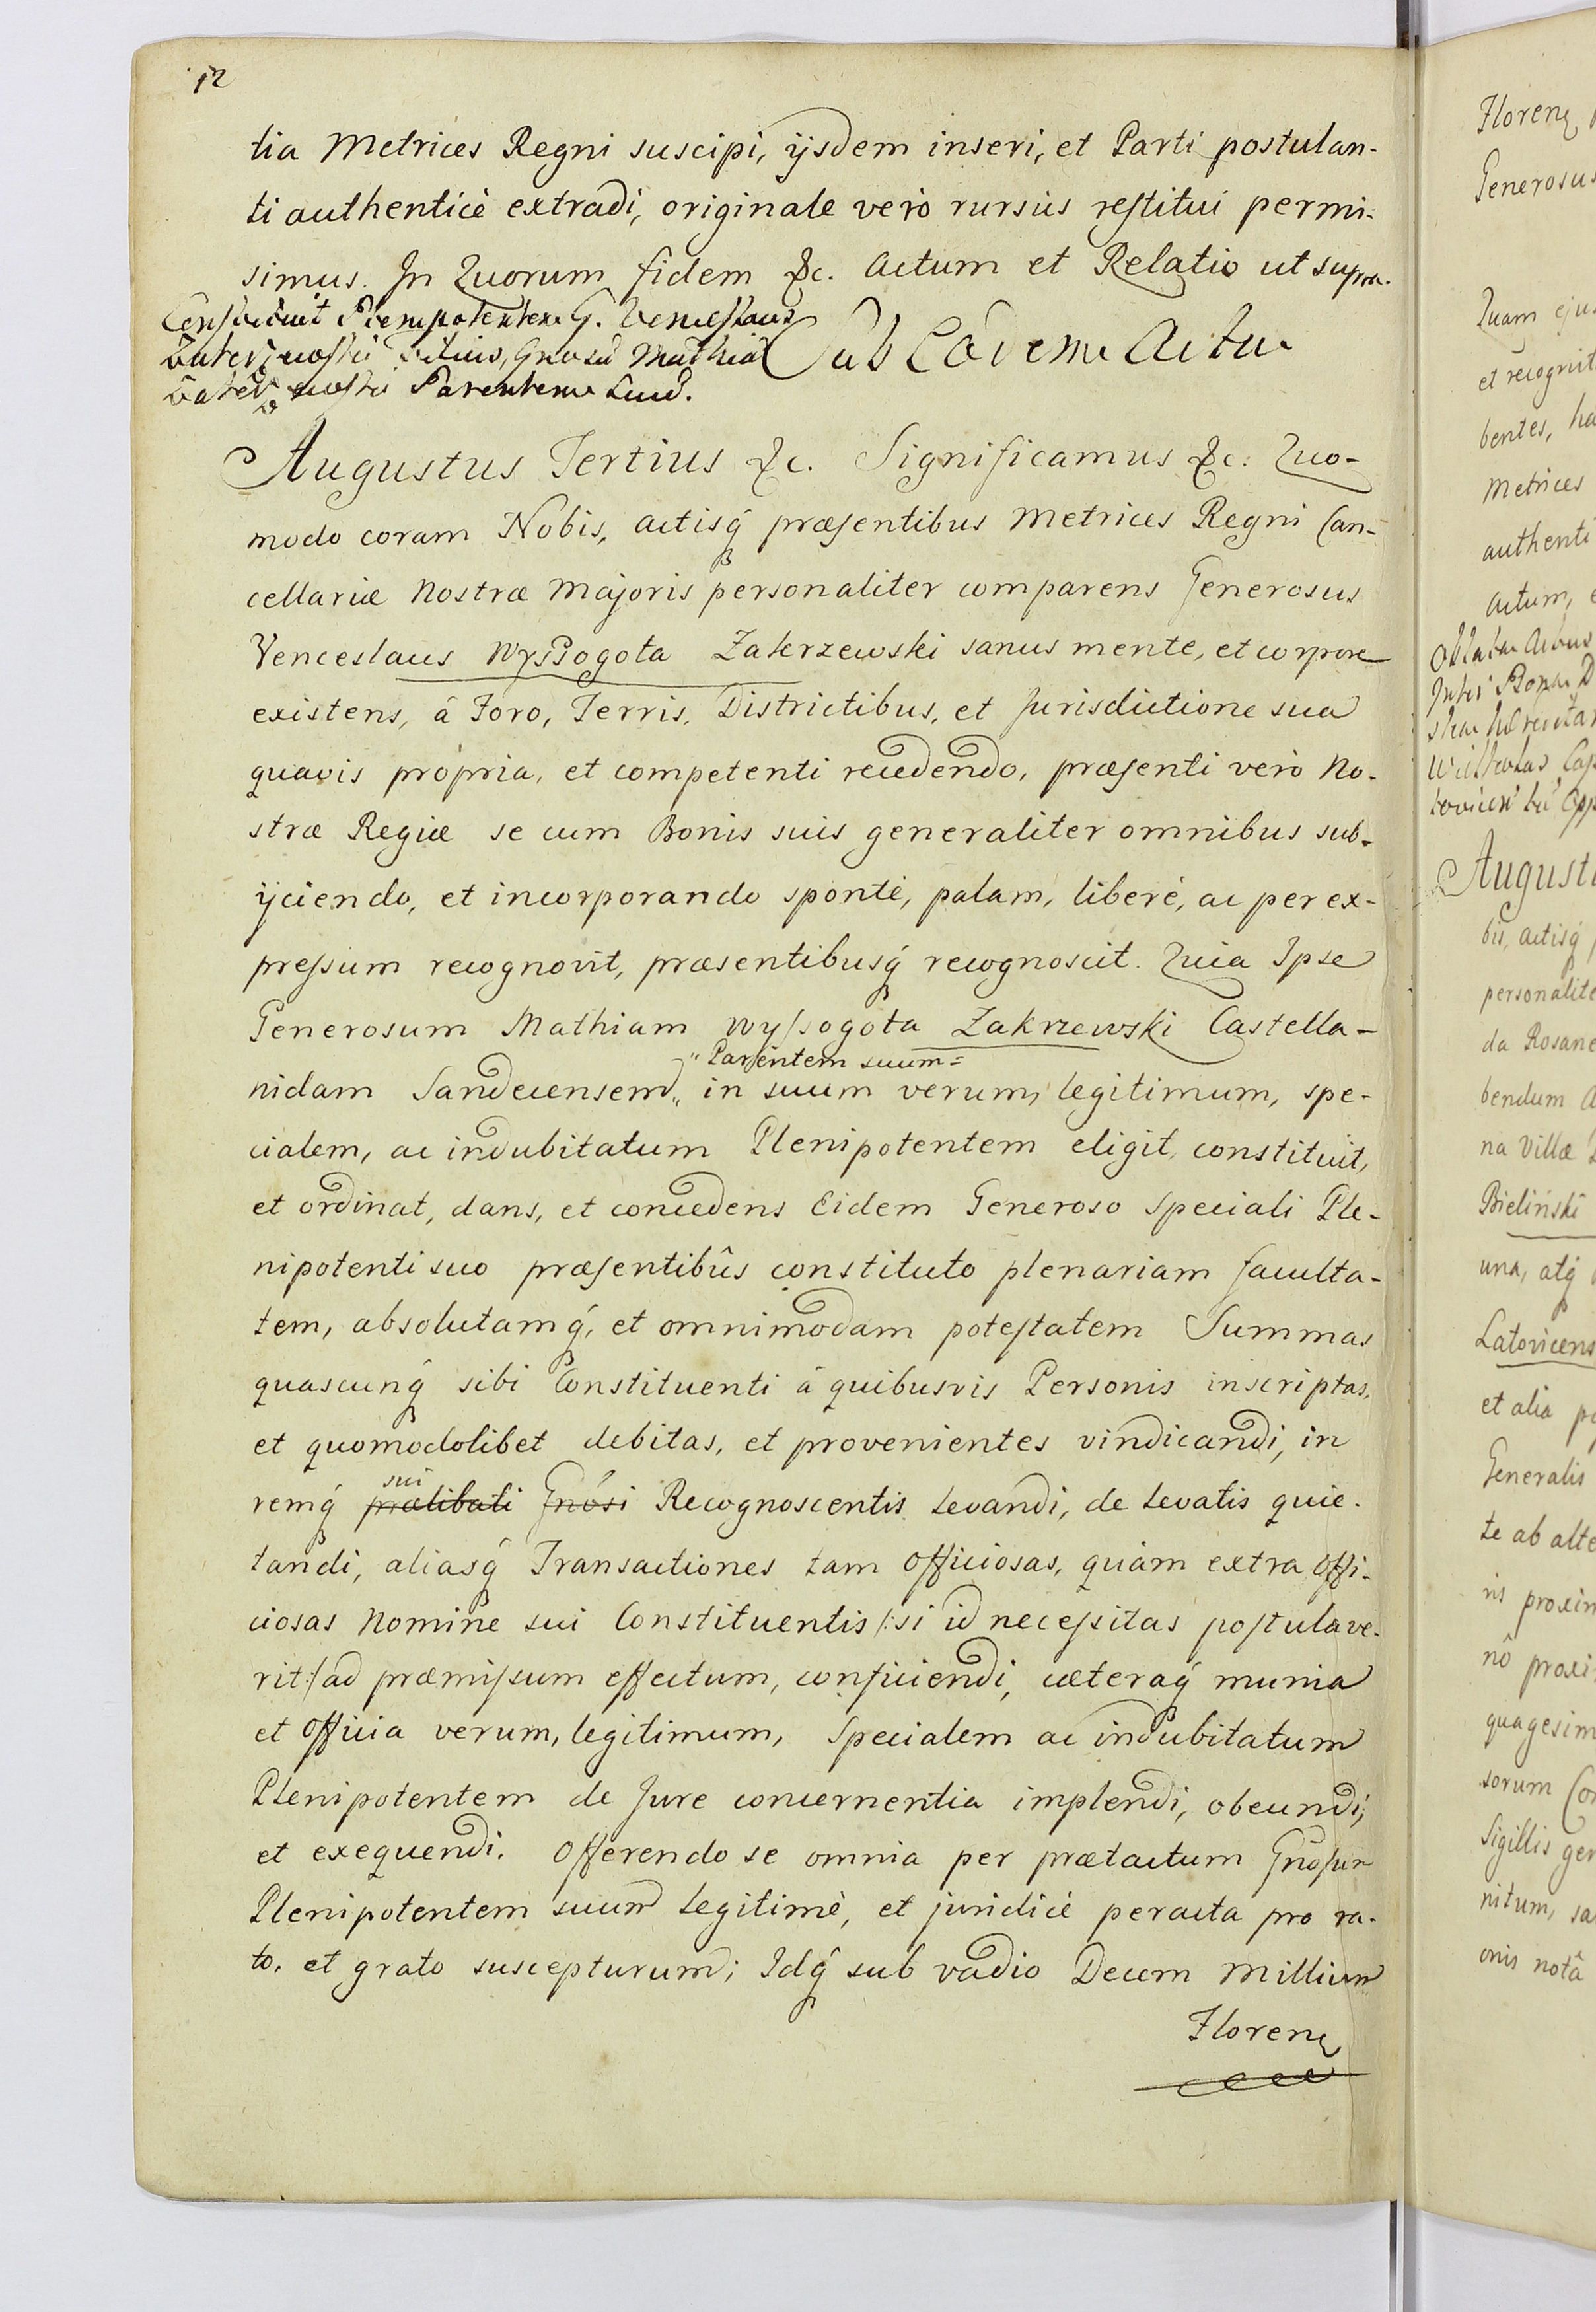 12
tia Metrices Regni suscipi, ijsdem inseri, et Parti postulan-
ti authenticè extradi, originale verò rursùs restitui permi-
simus. In Quorum fidem &c. Actum et Relatio ut supra.
Constituit Plenipotentem G. Venceslaus
Zakrzewski Filius, Gnosũ Mathiã
Zakrzewski Parentem Suũ.
Sub Eodem Actu
Augustus Tertius &c. Significamus &c: Quo-
modo coram Nobis, actisq́ præsentibus Metrices Regni Can-
cellariæ Nostræ Majoris personaliter comparens Generosus
Venceslaus Wyssogota Zakrzewski sanus mente, et corpore
existens, â Foro, Terris, Districtibus, et Jurisdictione sua
quavis própria, et competenti recedendo, præsenti verò No-
stræ Regiæ se cum Bonis suis generaliter omnibus sub-
ijciendo, et incorporando spontè, palam, liberè, ac per ex-
pressum recognovit, præsentibusq́ recognoscit. Quia Ipse
Generosum Mathiam Wyssogota Zakrzewski Castella-
"Parentem suum=
nidam Sandecensem„ in suum verum, legitimum, spe-
cialem, ac indubitatum Plenipotentem eligit, constituit,
et ordinat, dans, et concedens Eidem Generoso Speciali Ple-
nipotenti suo præsentibûs constituto plenariam faculta-
tem, absolutamq́, et omnimodam potestatem Summas
quascunq́ sibi Constituenti â quibusvis Personis inscriptas,
et quomodolibet debitas, et provenientes vindicandi, in
sui
remq́ prælibati Gnósi Recognoscentis levandi, de levatis quie-
tandi, aliasq́ Transactiones tam officiosas, quàm extra offi-
ciosas Nomine sui Constituentis /:si id necessitas postulave-
rit:/ ad præmissum effectum, conficiendi, cæteraq́ munia
et officia verum, legitimum, Specialem ac indubitatum
Plenipotentem de Jure concernentia implendi, obeundi,
et exequendi. Offerendo se omnia per prætactum Gnosum
Plenipotentem suum legitimè, et juridicè peracta pro ra-
to, et grato suscepturum; Idq́ sub vadio Decem Millium
Floren
Floren
Generosus
Quam ejus
et recognit
bentes, ha
Metrices
authenti
actum,
Augusti
bis, actisq́
personalite
da Rosane
bendum a
na Villæ
Bielinski
una, atq́
Latovicens
et alia
Generalis
te ab alte
ris proxim
nô proxi
quagesim
sorum Con
Sigillis gen
nitum, sa
onis notâ